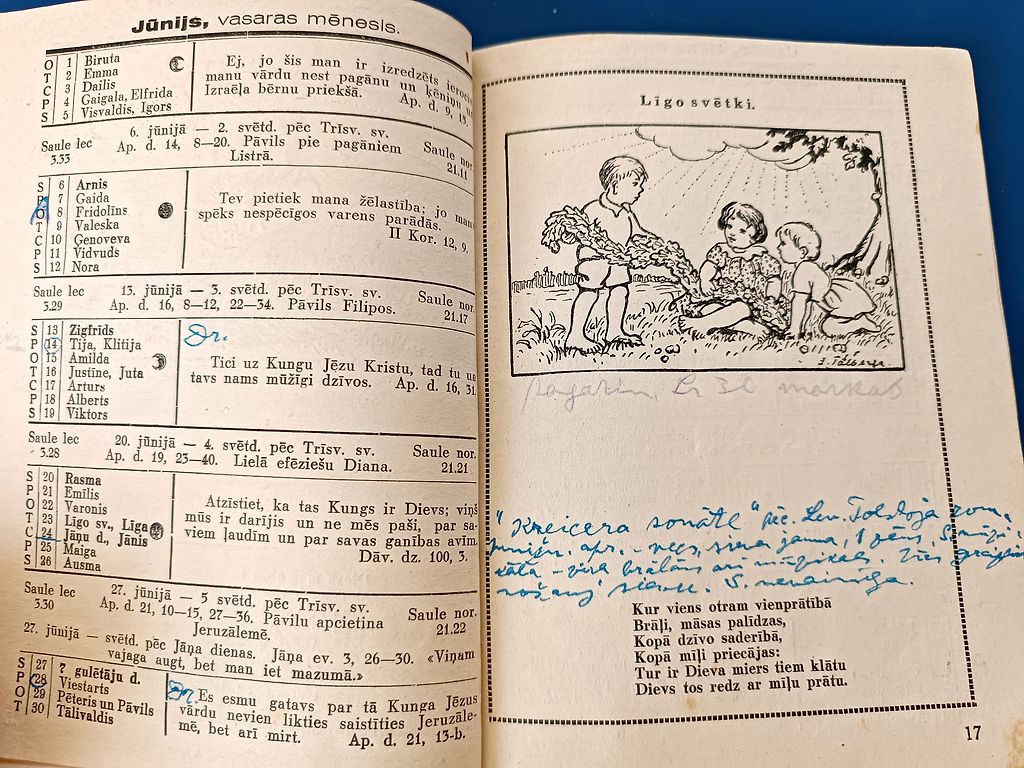 Jūnijs, vasaras mēnesis.
O 1 Biruta
T 2 Emma
C 3 Dailis
P 4 Gaigala, Elfrida
S 5 Visvaldis, Igors
Ej, jo šis man ir izredzēts
manu vārdu nest pagānu un ķēniņu
Izraēļa bērnu priekšā. Ap. d. 9, 15.
Saule lec 3.33
6. jūnijā — 2. svētd. pēc Trīsv. sv.
Ap. d. 14, 8—20. Pāvils pie pagāniem
Listrā.
Saule nor. 21.11
S 6 Arnis
P 7 Gaida
O 8 Fridolīns
T 9 Valeska
C 10 Ģenoveva
P 11 Vidvuds
S 12 Nora
Tev pietiek mana žēlastība; jo mans
spēks nespēcīgos varens parādās.
II Kor. 12, 9.
Saule lec 3.29
13. jūnijā — 3. svētd. pēc Trīsv. sv.
Ap. d. 16, 8—12, 22—34. Pāvils Filipos.
Saule nor. 21.17
S 13 Zigfrīds
P 14 Tija, Klitija
O 15 Amilda
T 16 Justīne, Juta
C 17 Arturs
P 18 Alberts
S 19 Viktors
Dr.
Tici uz Kungu Jēzu Kristu, tad tu un
tavs nams mūžīgi dzīvos. Ap. d. 16, 31.
Saule lec 3.28
20. jūnijā — 4. svētd. pēc Trīsv. sv.
Ap. d. 19, 23—40. Lielā efēziešu Diana.
Saule nor. 21.21
S 20 Rasma
P 21 Emīlis
O 22 Varonis
T 23 Līgo sv., Liga
C 24 Jāņu d., Jānis
P 25 Maiga
S 26 Ausma
Atzīstiet, ka tas Kungs ir Dievs; viņš
mūs ir darījis un ne mēs paši, par sa-
viem ļaudīm un par savas ganības avīm.
Dāv. dz. 100, 3.
Saule lec 3.30
27. jūnijā — 5 svētd. pēc Trīsv. sv.
Ap. d. 21, 10—15, 27—36. Pāvilu apcietina
Jeruzālemē.
Saule nor. 21.22
27. jūnijā — svētd. pēc Jāņa dienas. Jāņa ev. 3, 26—30. «Viņam
vajaga augt, bet man iet mazumā.»
S 27 7 gulētāju d.
P 28 Viestarts
O 29 Pēteris un Pāvils
T 30 Tālivaldis
Dr.
Es esmu gatavs par tā Kunga Jēzus
vārdu nevien likties saistīties Jeruzāle-
mē, bet arī mirt. Ap. d. 21, 13-b.
Līgo svētki.
30 markas
"Kreicera sonāte" pēc Lev. Tolstoja
S.
brālāns arī mūziķis.
S. nevainīga.
Kur viens otram vienprātībā
Brāļi, māsas palīdzas,
Kopā dzīvo saderībā,
Kopā mīļi priecājas:
Tur ir Dieva miers tiem klātu
Dievs tos redz ar mīļu prātu.
17